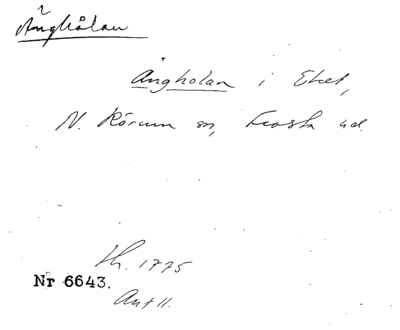 Ängholan
Ängholan i Eket,
N. Rörum sn, Frosta hd.
Lh. 1775
Nr 6643.
Akt 11.